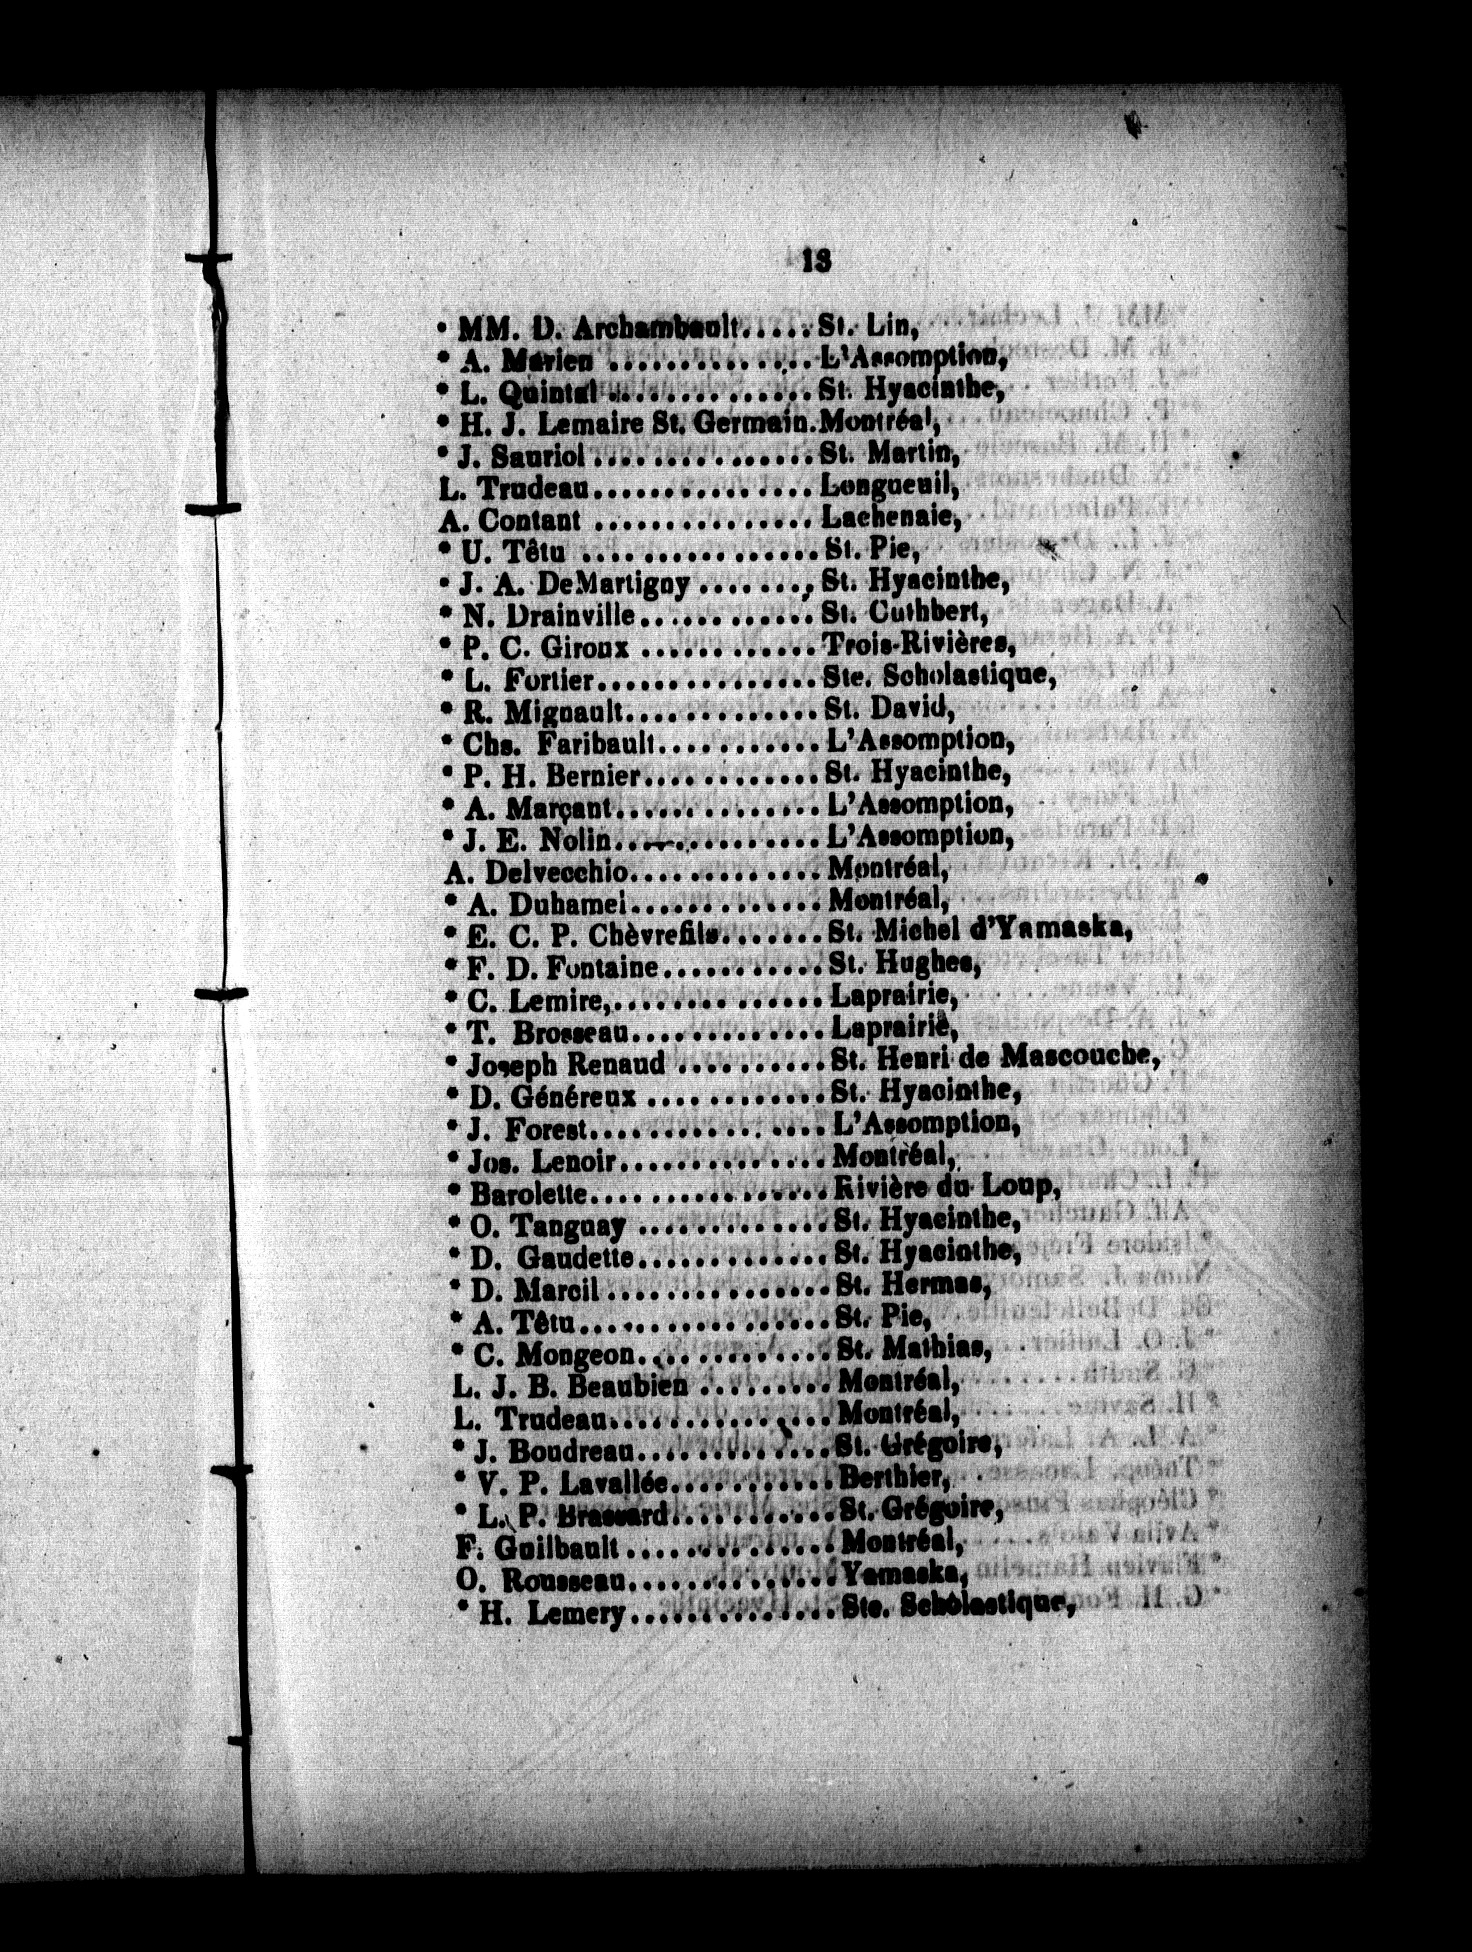 13
* MM. D. Archambault..... St. Lin,
* A. Marien .............. L'Assomption,
* L. Quintal .............. St. Hyacinthe,
* H. J. Lemaire St. Germain. Montréal,
* J. Sauriol ............... St. Martin,
L. Trudeau............... Longueuil,
A. Contant ............... Lachenaie,
* U. Têtu ................. St. Pie,
* J. A. DeMartigny ........, St. Hyacinthe,
* N. Drainville............ St. Cuthbert,
* P. C. Giroux ............ Trois-Rivières,
* L. Fortier............... Ste. Scholastique,
* R. Mignault............. St. David,
* Chs. Faribault........... L'Assomption,
* P. H. Bernier............ St. Hyacinthe,
* A. Marçant.............. L'Assomption,
* J. E. Nolin.............. L'Assomption,
A. Delvecchio............. Montréal,
* A. Duhamel............. Montréal,
* E. C. P. Chèvrefils....... St. Michel d'Yamaska,
* F. D. Fontaine........... St. Hughes,
* C. Lemire,............... Laprairie,
* T. Brosseau.............. Laprairie,
* Joseph Renaud .......... St. Henri de Mascouche,
* D. Généreux ............ St. Hyacinthe,
* J. Forest................ L'Assomption,
* Jos. Lenoir.............. Montréal,
* Barolette................. Rivière du Loup,
* O. Tanguay ............. St. Hyacinthe,
* D. Gaudette............. St. Hyacinthe,
* D. Marcil ............... St. Hermas,
* A. Têtu................. St. Pie,
* C. Mongeon............. St. Mathias,
L. J. B. Beaubien ......... Montréal,
L. Trudeau............... Montréal,
* J. Boudreau............. St. Grégoire,
* V. P. Lavallée........... Berthier,
* L. P. Brassard........... St. Grégoire,
F. Guilbault .............. Montréal,
O. Rousseau.............. Yamaska,
* H. Lemery.............. Ste. Scholastique,